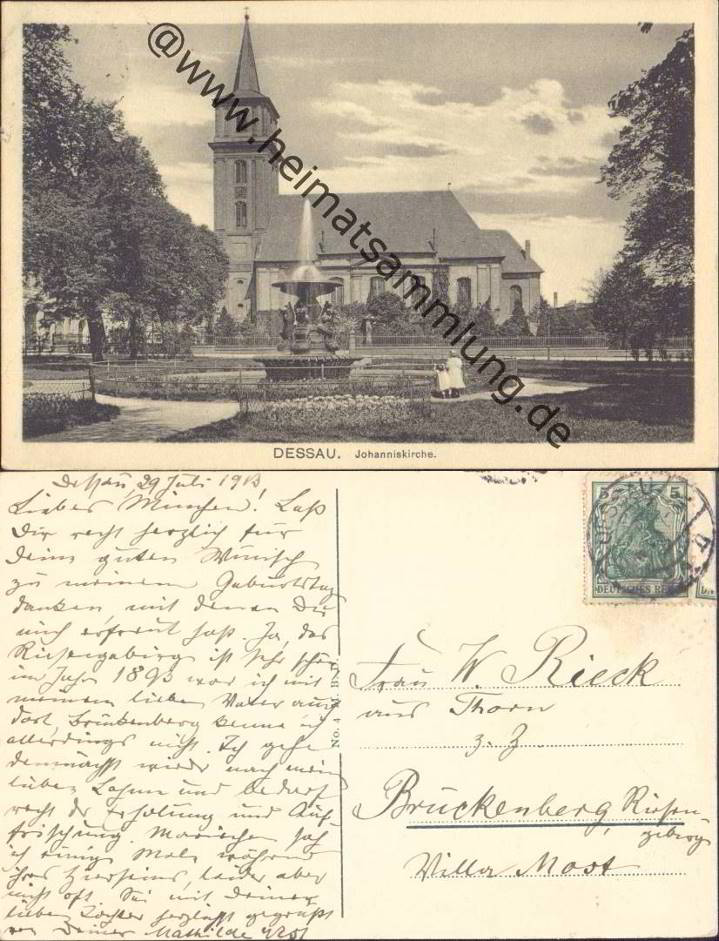 @www.heimatsammlung.de
DESSAU. Johanniskirche.
Dessau, 29 Juli 1913
Liebes Minchen! Laß
Dir recht herzlich für
Deine guten Wünsch
zu meinem Geburtstag
danken, mit denen Du
mich erfreut hast. Ja, das
Riesengebirge ist sehr schön
im Jahr 1893 war ich mit
meinem lieben Vater auch
dort, Brückenberg kenne ich
allerdings nicht. Ich gehe
demnächst wieder nach mein
lieben und bedarf
recht der Erholung und Auf-
frischung. Mariechen sah
ich einige Male während
ihres Hierseins, leider aber
nicht oft. Sei mit Deiner
lieben Tochter herzlichst gegrüßt
von Deiner Mathilde
5 5
DEUTSCHES REICH
DESSAU
No. 4
Frau W. Rieck
aus Thorn
z. Z.
Brückenberg, Riesen-
gebirge
Villa Most